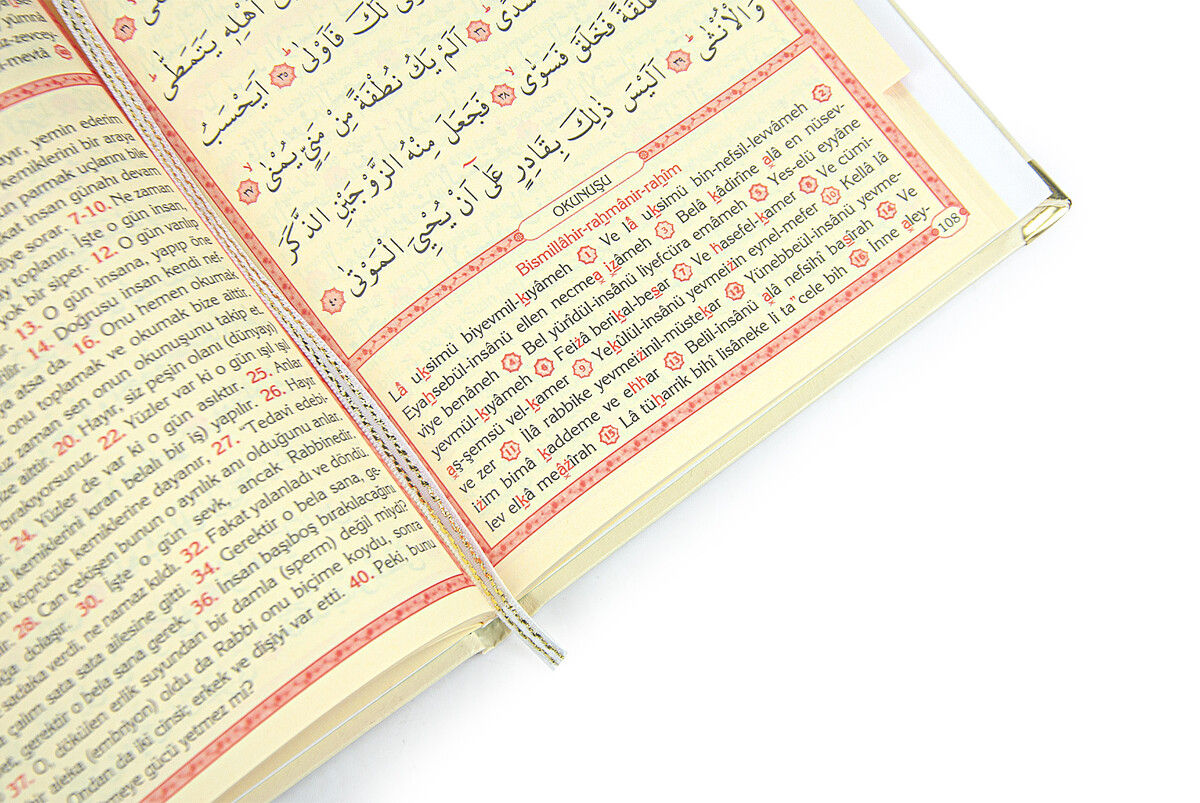 yümna
z-zevcey-
-mevtâ
ayır, yemin ederim
kemiklerini bir araya
un parmak uçlarını bile
kat insan günahı devam
diye sorar. 7-10. Ne zaman
y toplanır, İşte o gün insan,
yok bir siper. 12. O gün varılıp
r. 13. O gün insana, yapıp öne
14. Doğrusu insan kendi nef-
ya atsa da. 16. Onu hemen okumak
onu toplamak ve okumak bize aittir.
uz zaman sen onun okunuşunu takip et.
ize aittir. 20. Hayır, siz peşin olanı (dünyayı)
bırakıyorsunuz. 22. Yüzler var ki o gün ışıl ışıl
24. Yüzler de var ki o gün asıktır. 25. Anlar
bel kemiklerini kıran belalı bir iş) yapılır. 26. Hayır
köprücük kemiklerine dayanır, 27. "Tedavi edebi-
28. Can çekişen bunun o ayrılık anı olduğunu anlar.
dolaşır. 30. İşte o gün sevk, ancak Rabbinedir.
sadaka verdi, ne namaz kıldı. 32. Fakat yalanladı ve döndü.
çalım sata sata ailesine gitti. 34. Gerektir o bela sana, ge-
gerektir o bela sana gerek. 36. İnsan başıboş bırakılacağını
37. O, dökülen erlik suyundan bir damla (sperm) değil miydi?
bir aleka (embriyon) oldu da Rabbi onu biçime koydu, sonra
Ondan da iki cinsi; erkek ve dişiyi var etti. 40. Peki, bunu
meye gücü yetmez mi?
اَهْلِهٖ يَتَمَطّٰىۜ
لَكَ فَاَوْلٰىۜ ﴿٣٥﴾ اَيَحْسَبُ
سُدًىۜ ﴿٣٦﴾ اَلَمْ يَكُ نُطْفَةً مِنْ مَنِيٍّ يُمْنٰىۙ ﴿٣٧﴾
فَخَلَقَ فَسَوّٰىۙ ﴿٣٨﴾ فَجَعَلَ مِنْهُ الزَّوْجَيْنِ الذَّكَرَ
وَالْاُنْثٰىۜ ﴿٣٩﴾ اَلَيْسَ ذٰلِكَ بِقَادِرٍ عَلٰٓى اَنْ يُحْيِيَ الْمَوْتٰى ﴿٤٠﴾
OKUNUŞU
Bismillâhir-rahmânir-rahîm
Lâ uksimü biyevmil-kıyâmeh 1 Ve lâ uksimü bin-nefsil-levvâmeh 2
Eyahsebül-insânü ellen necmea ızâmeh 3 Belâ kâdirîne alâ en nüsev-
viye benâneh 4 Bel yürîdül-insânü liyefcüra emâmeh 5 Yes-elü eyyâne
yevmül-kıyâmeh 6 Feizâ berikal-besar 7 Ve hasefel-kamer 8 Ve cümi-
aş-şemsü vel-kamer 9 Yekülül-insânü yevmeizin eynel-mefer 10 Kellâ lâ
ve zer 11 İlâ rabbike yevmeizinil-müstekar 12 Yünebbeül-insânü yevme-
izim bimâ kaddeme ve ehhar 13 Belil-insânü alâ nefsihî basîrah 14 Ve
lev elkâ meâzîrah 15 Lâ tüharrik bihî lisâneke li ta"cele bih 16 İnne aley-
108